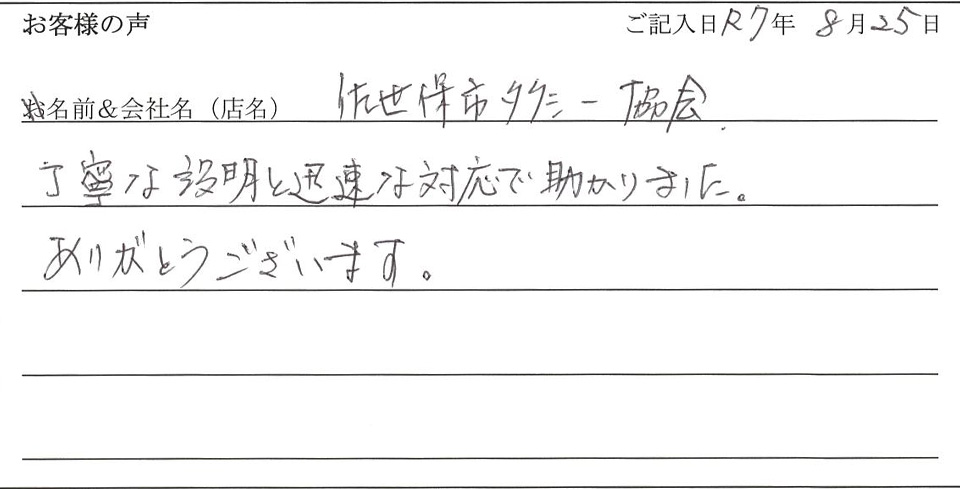 お客様の声 ご記入日R7年 8月25日
お名前&会社名（店名） 佐世保市タクシー協会
丁寧な説明と迅速な対応で助かりました。
ありがとうございます。